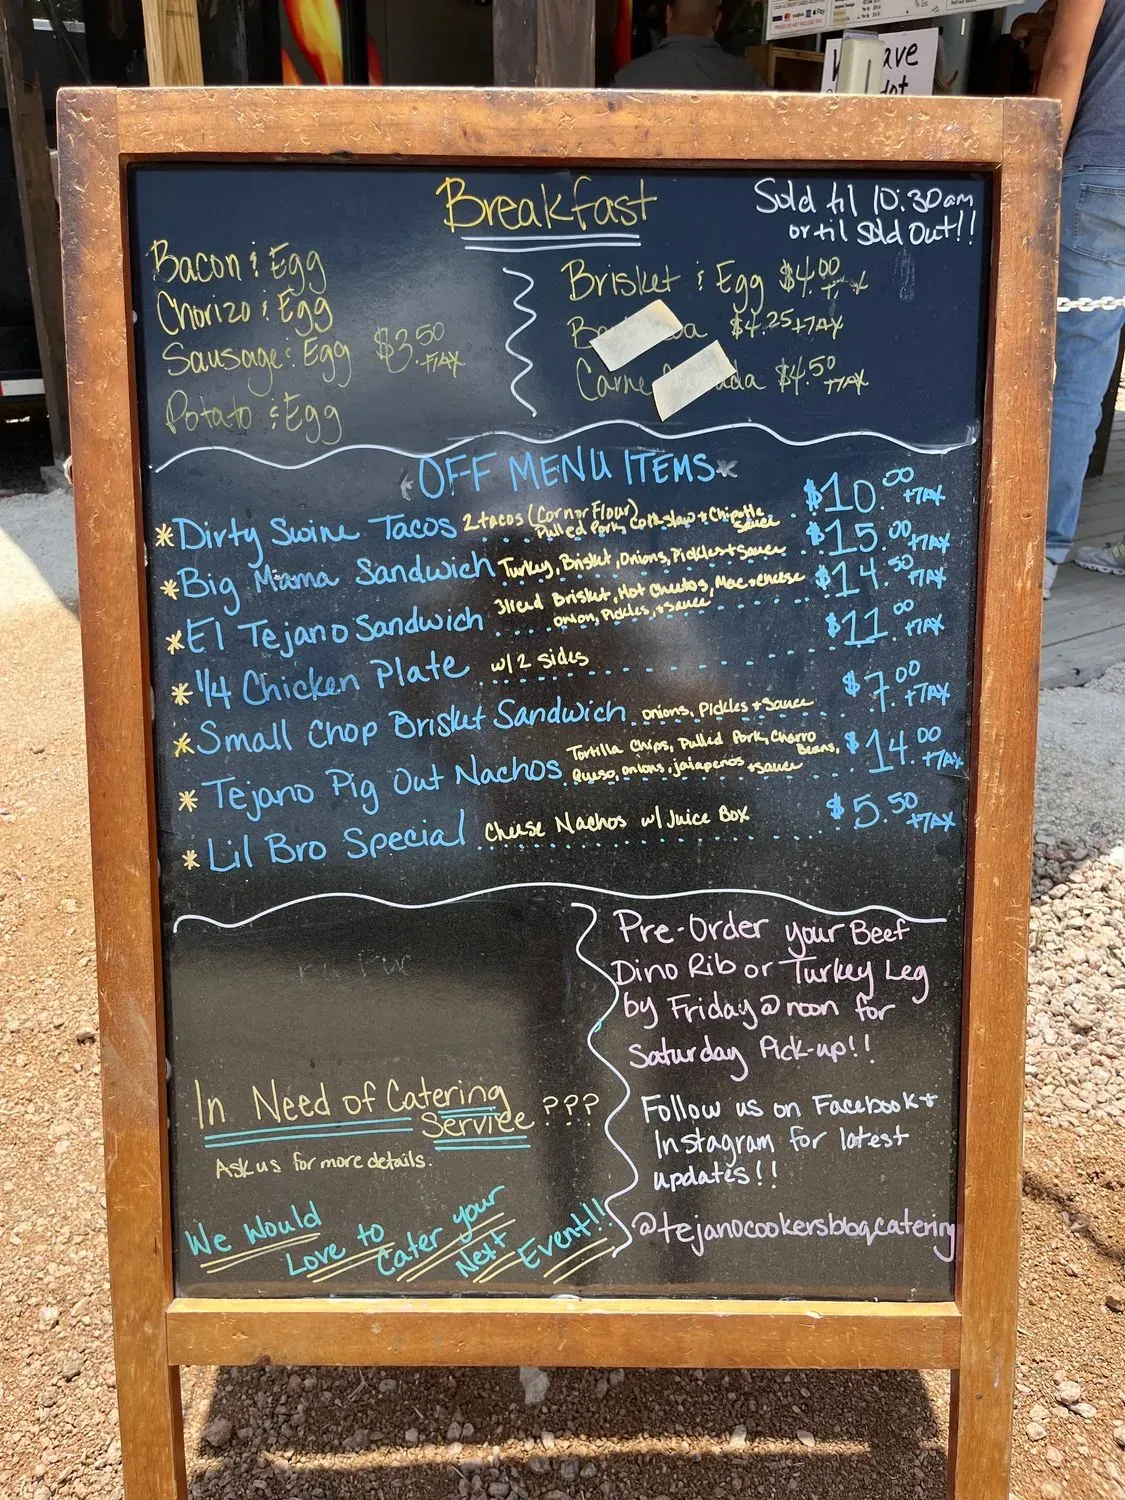 ave
Breakfast
Sold til 10:30am
or til Sold Out!!
Bacon & Egg
Chorizo & Egg
Sausage & Egg $3.50 +TAX
Potato & Egg
Brisket & Egg $4.00
$4.25+TAX
Carne $4.50 +TAX
OFF MENU ITEMS
*Dirty Swine Tacos 2 tacos (Corn or Flour) $10.00 +TAX
Pulled Pork, Coleslaw + Chipotle
Sauce
*Big Mama Sandwich Turkey, Brisket, Onions, Pickles + Sauce $15.00 +TAX
*El Tejano Sandwich Sliced Brisket, Hot Cheetos, Mac + cheese $14.50 +TAX
onion, Pickles, + Sauce
*1/4 Chicken Plate w/ 2 sides $11.00 +TAX
*Small Chop Brisket Sandwich onions, Pickles + Sauce $7.00 +TAX
*Tejano Pig Out Nachos Tortilla Chips, Pulled Pork, Charro Beans, $14.00 +TAX
Queso, onions, jalapenos + sauce
*Lil Bro Special Cheese Nachos w/ Juice Box $5.50 +TAX
Pre-Order your Beef
Dino Rib or Turkey Leg
by Friday @ noon for
Saturday Pick-up!!
In Need of Catering
Service ???
Ask us for more details.
We Would
Love to
Cater your
Next
Event!!
Follow us on Facebook +
Instagram for latest
updates!!
@tejanocookersbbqcatering